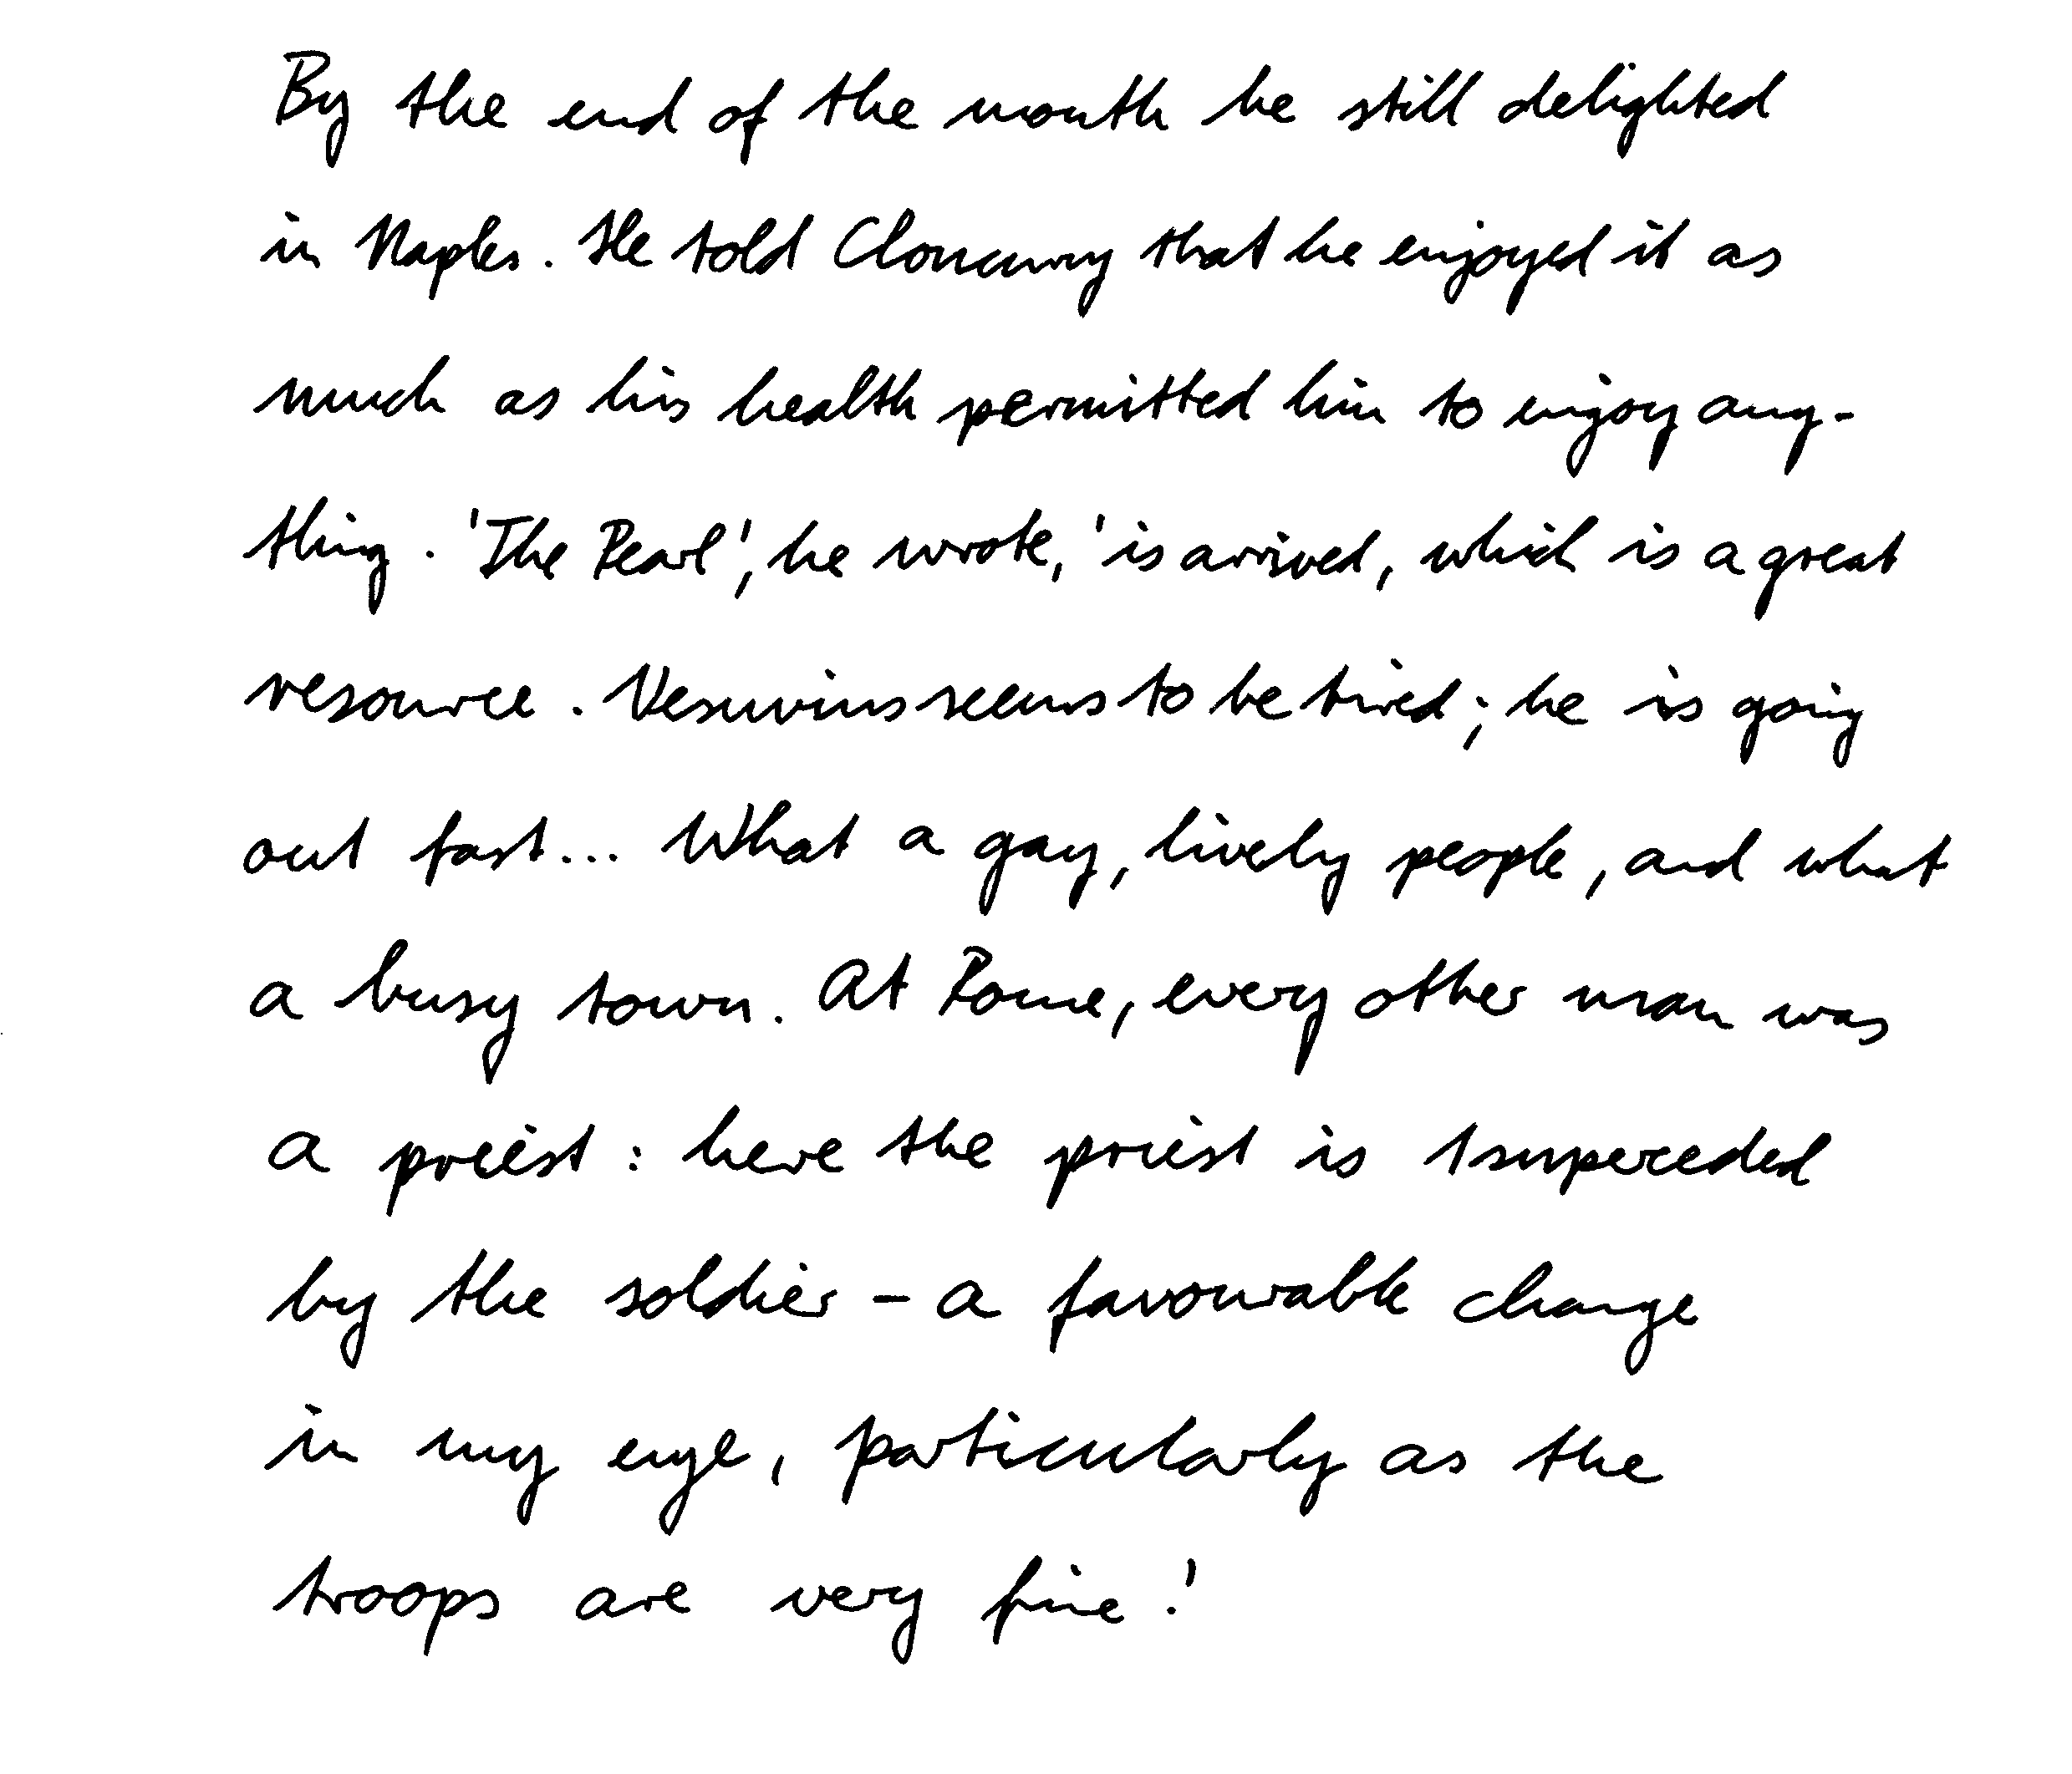 By the end of the month he still delighted
in Naples. He told Cloncurry that he enjoyed it as
much as his health permitted him to enjoy any-
thing. 'The Pearl', he wrote, 'is arrived, which is a great
resource. Vesuvius seems to be tired; he is going
out fast... What a gay, lively people, and what
a busy town. At Rome, every other man was
a priest: here the priest is superceded
by the soldier - a favourable change
in my eye, particularly as the
troops are very fine!'